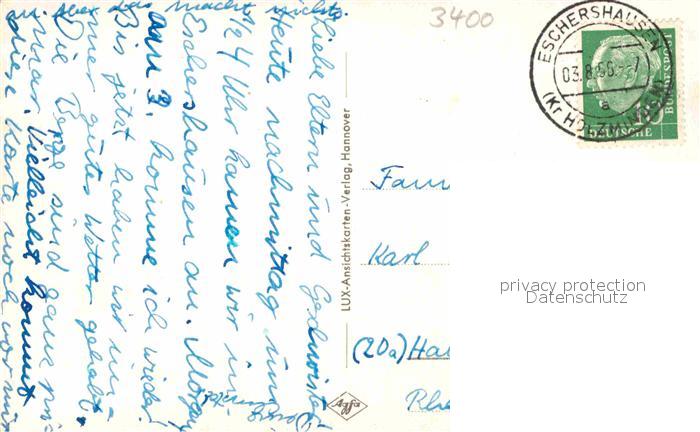 3400
ESCHERSHAUSEN
03.8.56.-7
a
(Kr HOLZMINDEN)
DEUTSCHE
BUNDESPOST
Liebe Eltern und Geschwister
Heute nachmittag um
1/2 4 Uhr kamen wir in
Eschershausen an. Morgen
am 3. komme ich wieder!
Bis jetzt haben wir im-
mer gutes Wetter gehabt.
Die Berge sind ganz
Vielleicht kommt
diese Karte noch vor mir
aber das macht nichts.
LUX-Ansichtskarten-Verlag, Hannover
Agfa
Fam
Karl
(20a) Ha
privacy protection
Datenschutz